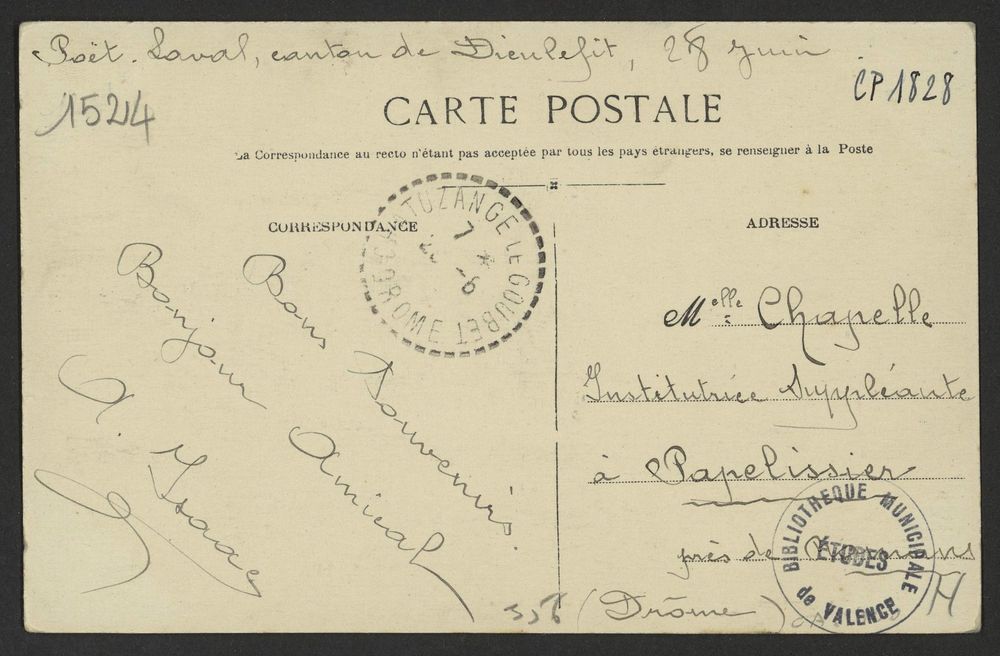 Poët-Laval, canton de Dieulefit, 28 juin
1524
CP 1828
CARTE POSTALE
La Correspondance au recto n'étant pas acceptée par tous les pays étrangers, se renseigner à la Poste
CORRESPONDANCE
CHATUZANGE LE GOUBET
7
6
DROME
ADRESSE
Bons Souvenirs.
Bonjour Amical
A. Isaac
Melle Chapelle
Institutrice Suppléante
à Papelissier
près de Romans
(Drôme)
BIBLIOTHEQUE MUNICIPALE
ÉTUDES
de VALENCE